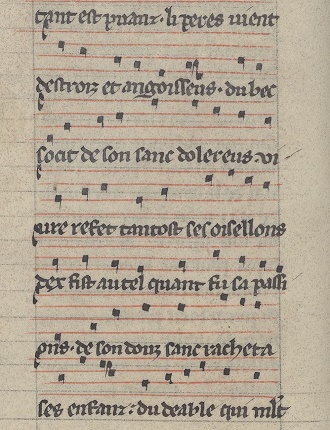 tant est puanz · li peres vient
destroiz et angoisseus · du bec
soat de son sanc dolereus · vi
uire refet tantost ses oisellons
dex fist autel quant fu sa passi
ons · de son douz sanc racheta
ses enfanz : du deable qui mlt